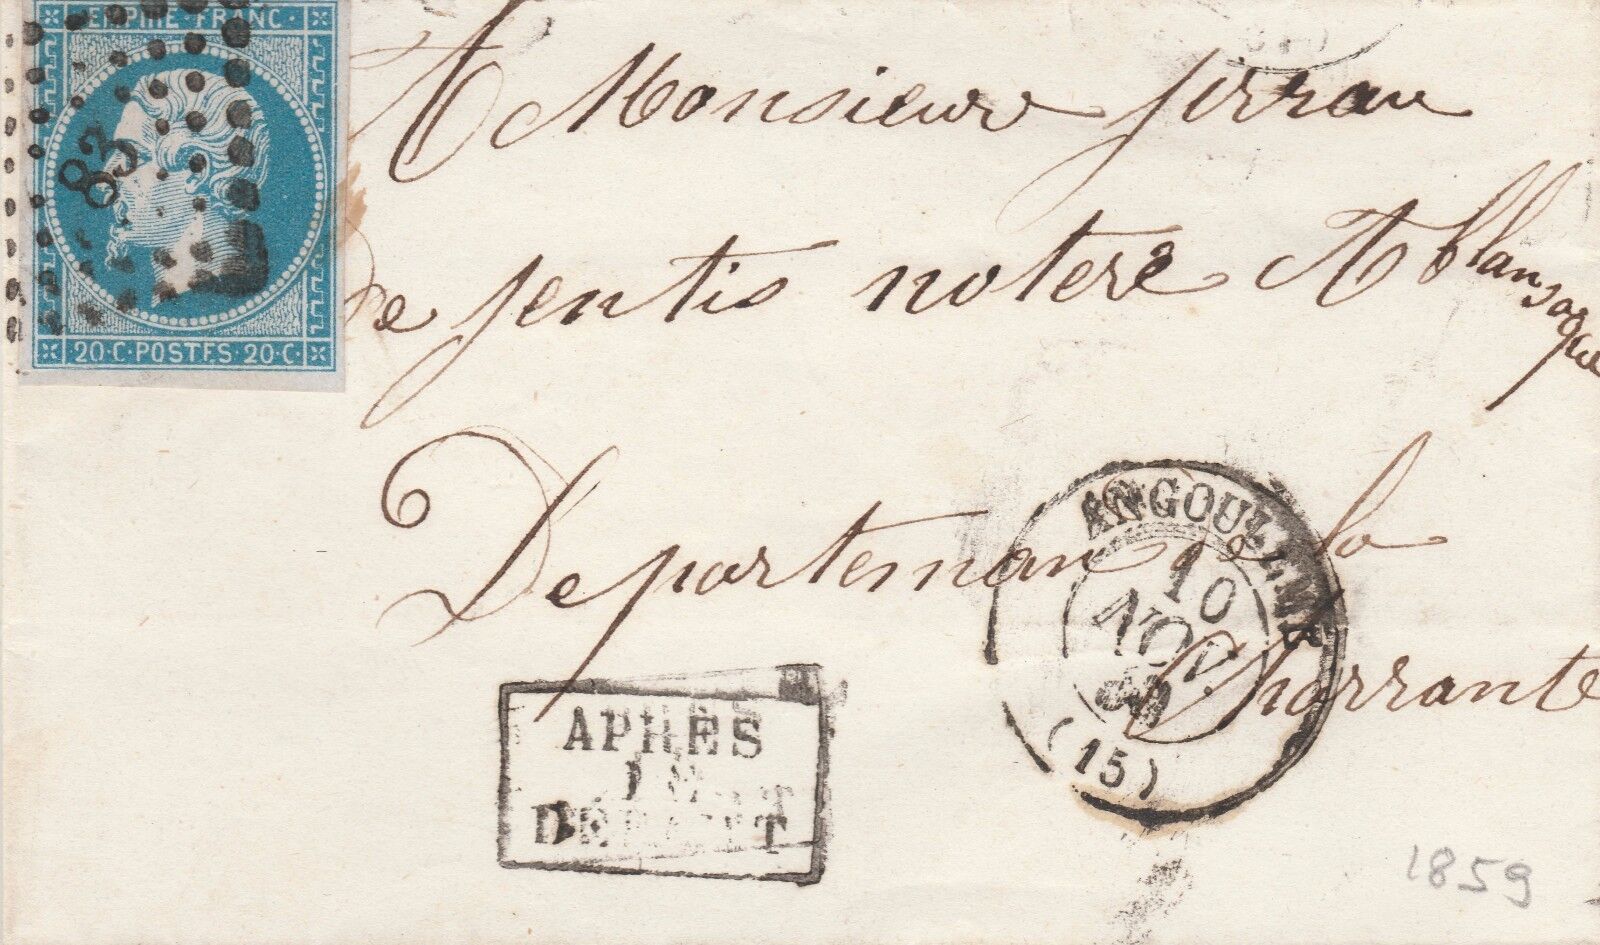 EMPIRE FRANC
83
20·C·POSTES·20·C·
A Monsieur ferran
De jentis notere A blansaque
Departeman de la
Charrante
ANGOULEME
10
NOV.
(15)
APRÈS
LE
DÉPART
1859